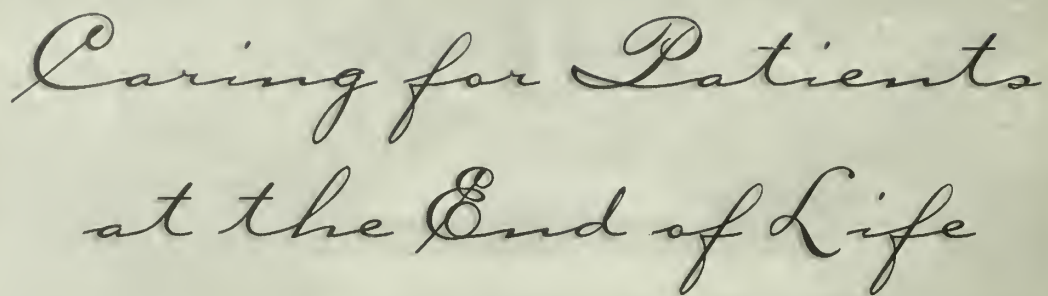 Caring for Patients
at the End of Life